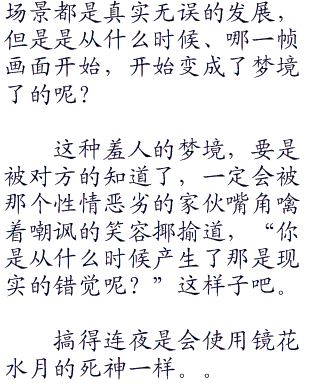 场景都是真实无误的发展，
但是是从什么时候、哪一帧
画面开始，开始变成了梦境
了的呢？
这种羞人的梦境，要是
被对方的知道了，一定会被
那个性情恶劣的家伙嘴角噙
着嘲讽的笑容揶揄道，“你
是从什么时候产生了那是现
实的错觉呢？”这样子吧。
搞得连夜是会使用镜花
水月的死神一样。。